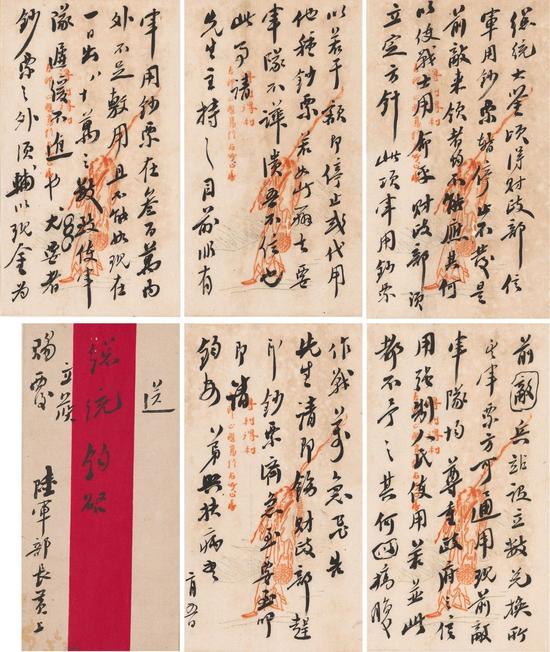 總統大鑒頃得財政部信
軍用鈔票暫停止不發是
前敵來領者均不能應其何
以使戰士用命乎財政部須
立定方針此項軍用鈔票
以若干額即停止或代用
他種鈔票若如此辦去要
軍隊不譁潰吾不信也
此事請
先生主持之目前
軍用鈔票在叁百萬內
外不足敷用且不能如現在
一日出八十萬之數致使軍
隊遲緩不進也大要者
鈔票之外須輔以現金為
前敵兵站設立數兌換所
其軍票方可通用現前敵
軍隊均尊重政府信
用強制人民使用若並此
都不予之其何
作戰萬急
先生請即飭財政部趕
印鈔票濟急至要
即請
鈞安 弟興扶病書
送
總統鈞啓
立候
賜覆
陸軍部長黃上